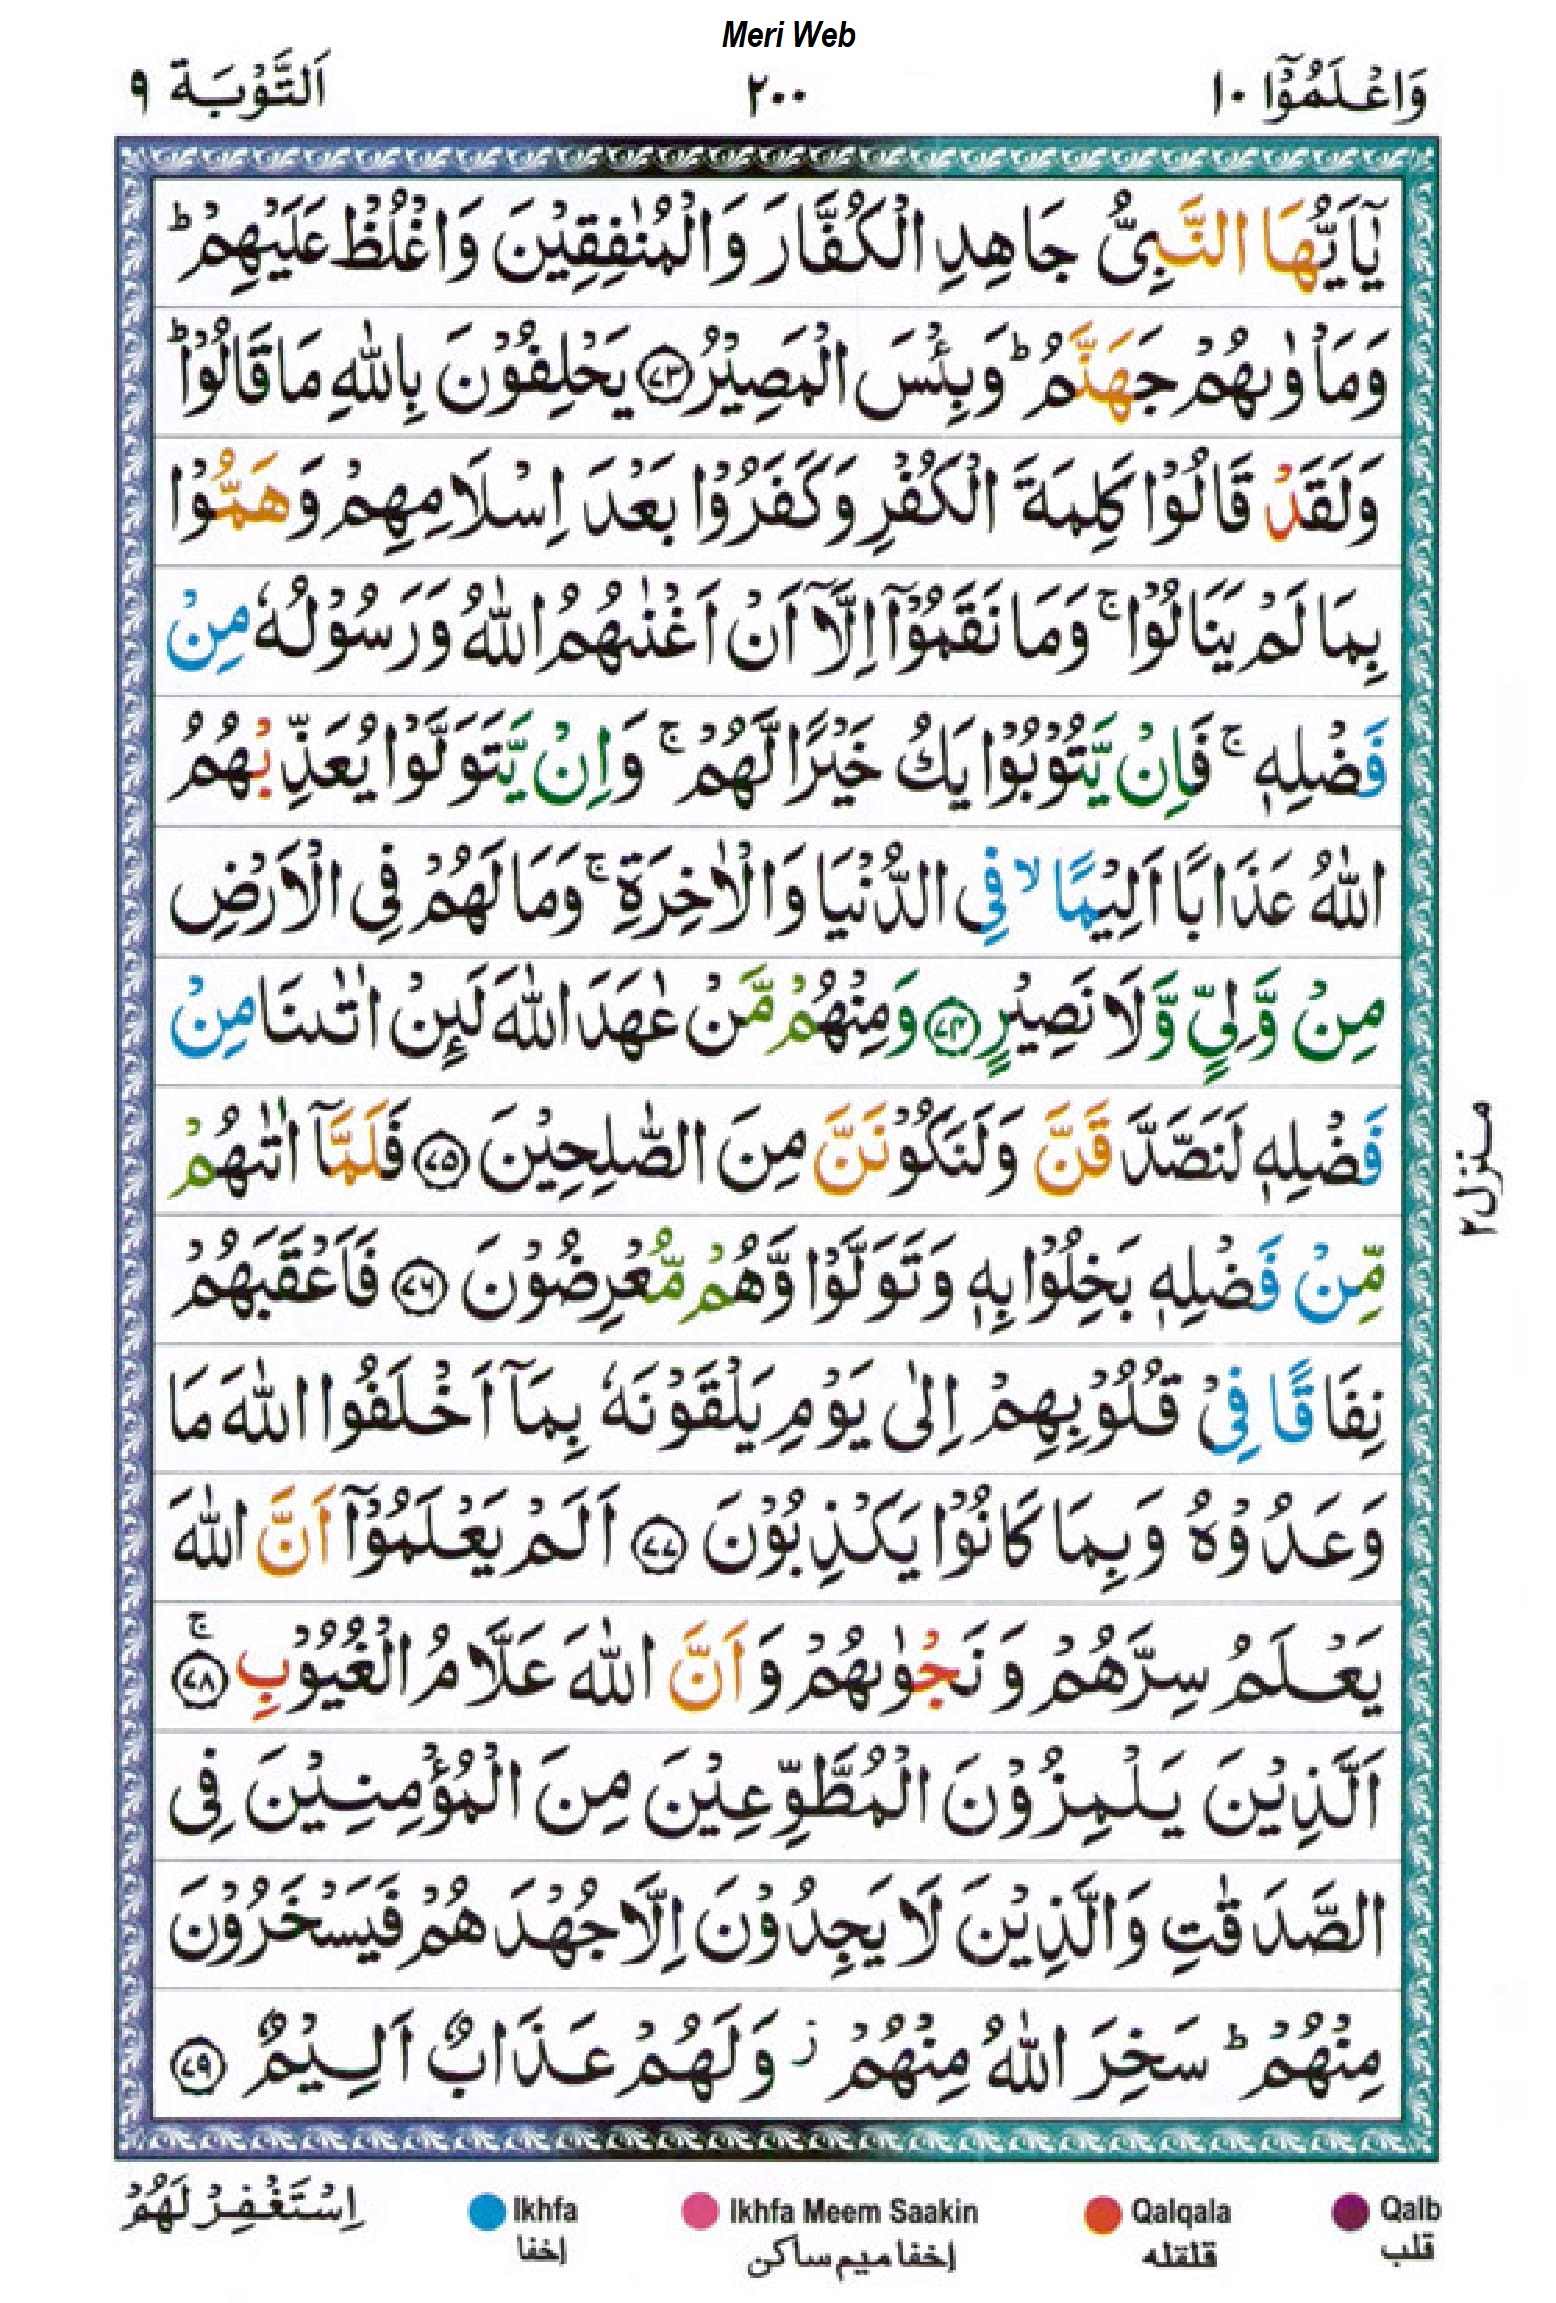 Meri Web
وَاعْلَمُوْۤا ۱۰ ۲۰۰ اَلتَّوْبَة ۹
يٰۤاَيُّهَا النَّبِيُّ جَاهِدِ الْكُفَّارَ وَالْمُنٰفِقِيْنَ وَاغْلُظْ عَلَيْهِمْ ؕ
وَمَاْوٰىهُمْ جَهَنَّمُ ؕ وَبِئْسَ الْمَصِيْرُ ۝۷۳ يَحْلِفُوْنَ بِاللّٰهِ مَا قَالُوْا ؕ
وَلَقَدْ قَالُوْا كَلِمَةَ الْكُفْرِ وَكَفَرُوْا بَعْدَ اِسْلَامِهِمْ وَهَمُّوْا
بِمَا لَمْ يَنَالُوْا ۚ وَمَا نَقَمُوْۤا اِلَّاۤ اَنْ اَغْنٰىهُمُ اللّٰهُ وَرَسُوْلُهٗ مِنْ
فَضْلِهٖ ۚ فَاِنْ يَّتُوْبُوْا يَكُ خَيْرًا لَّهُمْ ۚ وَاِنْ يَّتَوَلَّوْا يُعَذِّبْهُمُ
اللّٰهُ عَذَابًا اَلِيْمًا ۙ فِي الدُّنْيَا وَالْاٰخِرَةِ ۚ وَمَا لَهُمْ فِي الْاَرْضِ
مِنْ وَّلِيٍّ وَّلَا نَصِيْرٍ ۝۷۴ وَمِنْهُمْ مَّنْ عٰهَدَ اللّٰهَ لَئِنْ اٰتٰىنَا مِنْ
فَضْلِهٖ لَنَصَّدَّقَنَّ وَلَنَكُوْنَنَّ مِنَ الصّٰلِحِيْنَ ۝۷۵ فَلَمَّاۤ اٰتٰىهُمْ
مِّنْ فَضْلِهٖ بَخِلُوْا بِهٖ وَتَوَلَّوْا وَّهُمْ مُّعْرِضُوْنَ ۝۷۶ فَاَعْقَبَهُمْ
نِفَاقًا فِيْ قُلُوْبِهِمْ اِلٰى يَوْمِ يَلْقَوْنَهٗ بِمَاۤ اَخْلَفُوا اللّٰهَ مَا
وَعَدُوْهُ وَبِمَا كَانُوْا يَكْذِبُوْنَ ۝۷۷ اَلَمْ يَعْلَمُوْۤا اَنَّ اللّٰهَ
يَعْلَمُ سِرَّهُمْ وَنَجْوٰىهُمْ وَاَنَّ اللّٰهَ عَلَّامُ الْغُيُوْبِ ۝۷۸ ۚ
اَلَّذِيْنَ يَلْمِزُوْنَ الْمُطَّوِّعِيْنَ مِنَ الْمُؤْمِنِيْنَ فِي
الصَّدَقٰتِ وَالَّذِيْنَ لَا يَجِدُوْنَ اِلَّا جُهْدَهُمْ فَيَسْخَرُوْنَ
مِنْهُمْ ؕ سَخِرَ اللّٰهُ مِنْهُمْ ز وَلَهُمْ عَذَابٌ اَلِيْمٌ ۝۷۹
منزل۲
اِسْتَغْفِرْ لَهُمْ
Ikhfa Ikhfa Meem Saakin Qalqala Qalb
إخفا إخفا میم ساکن قلقله قلب